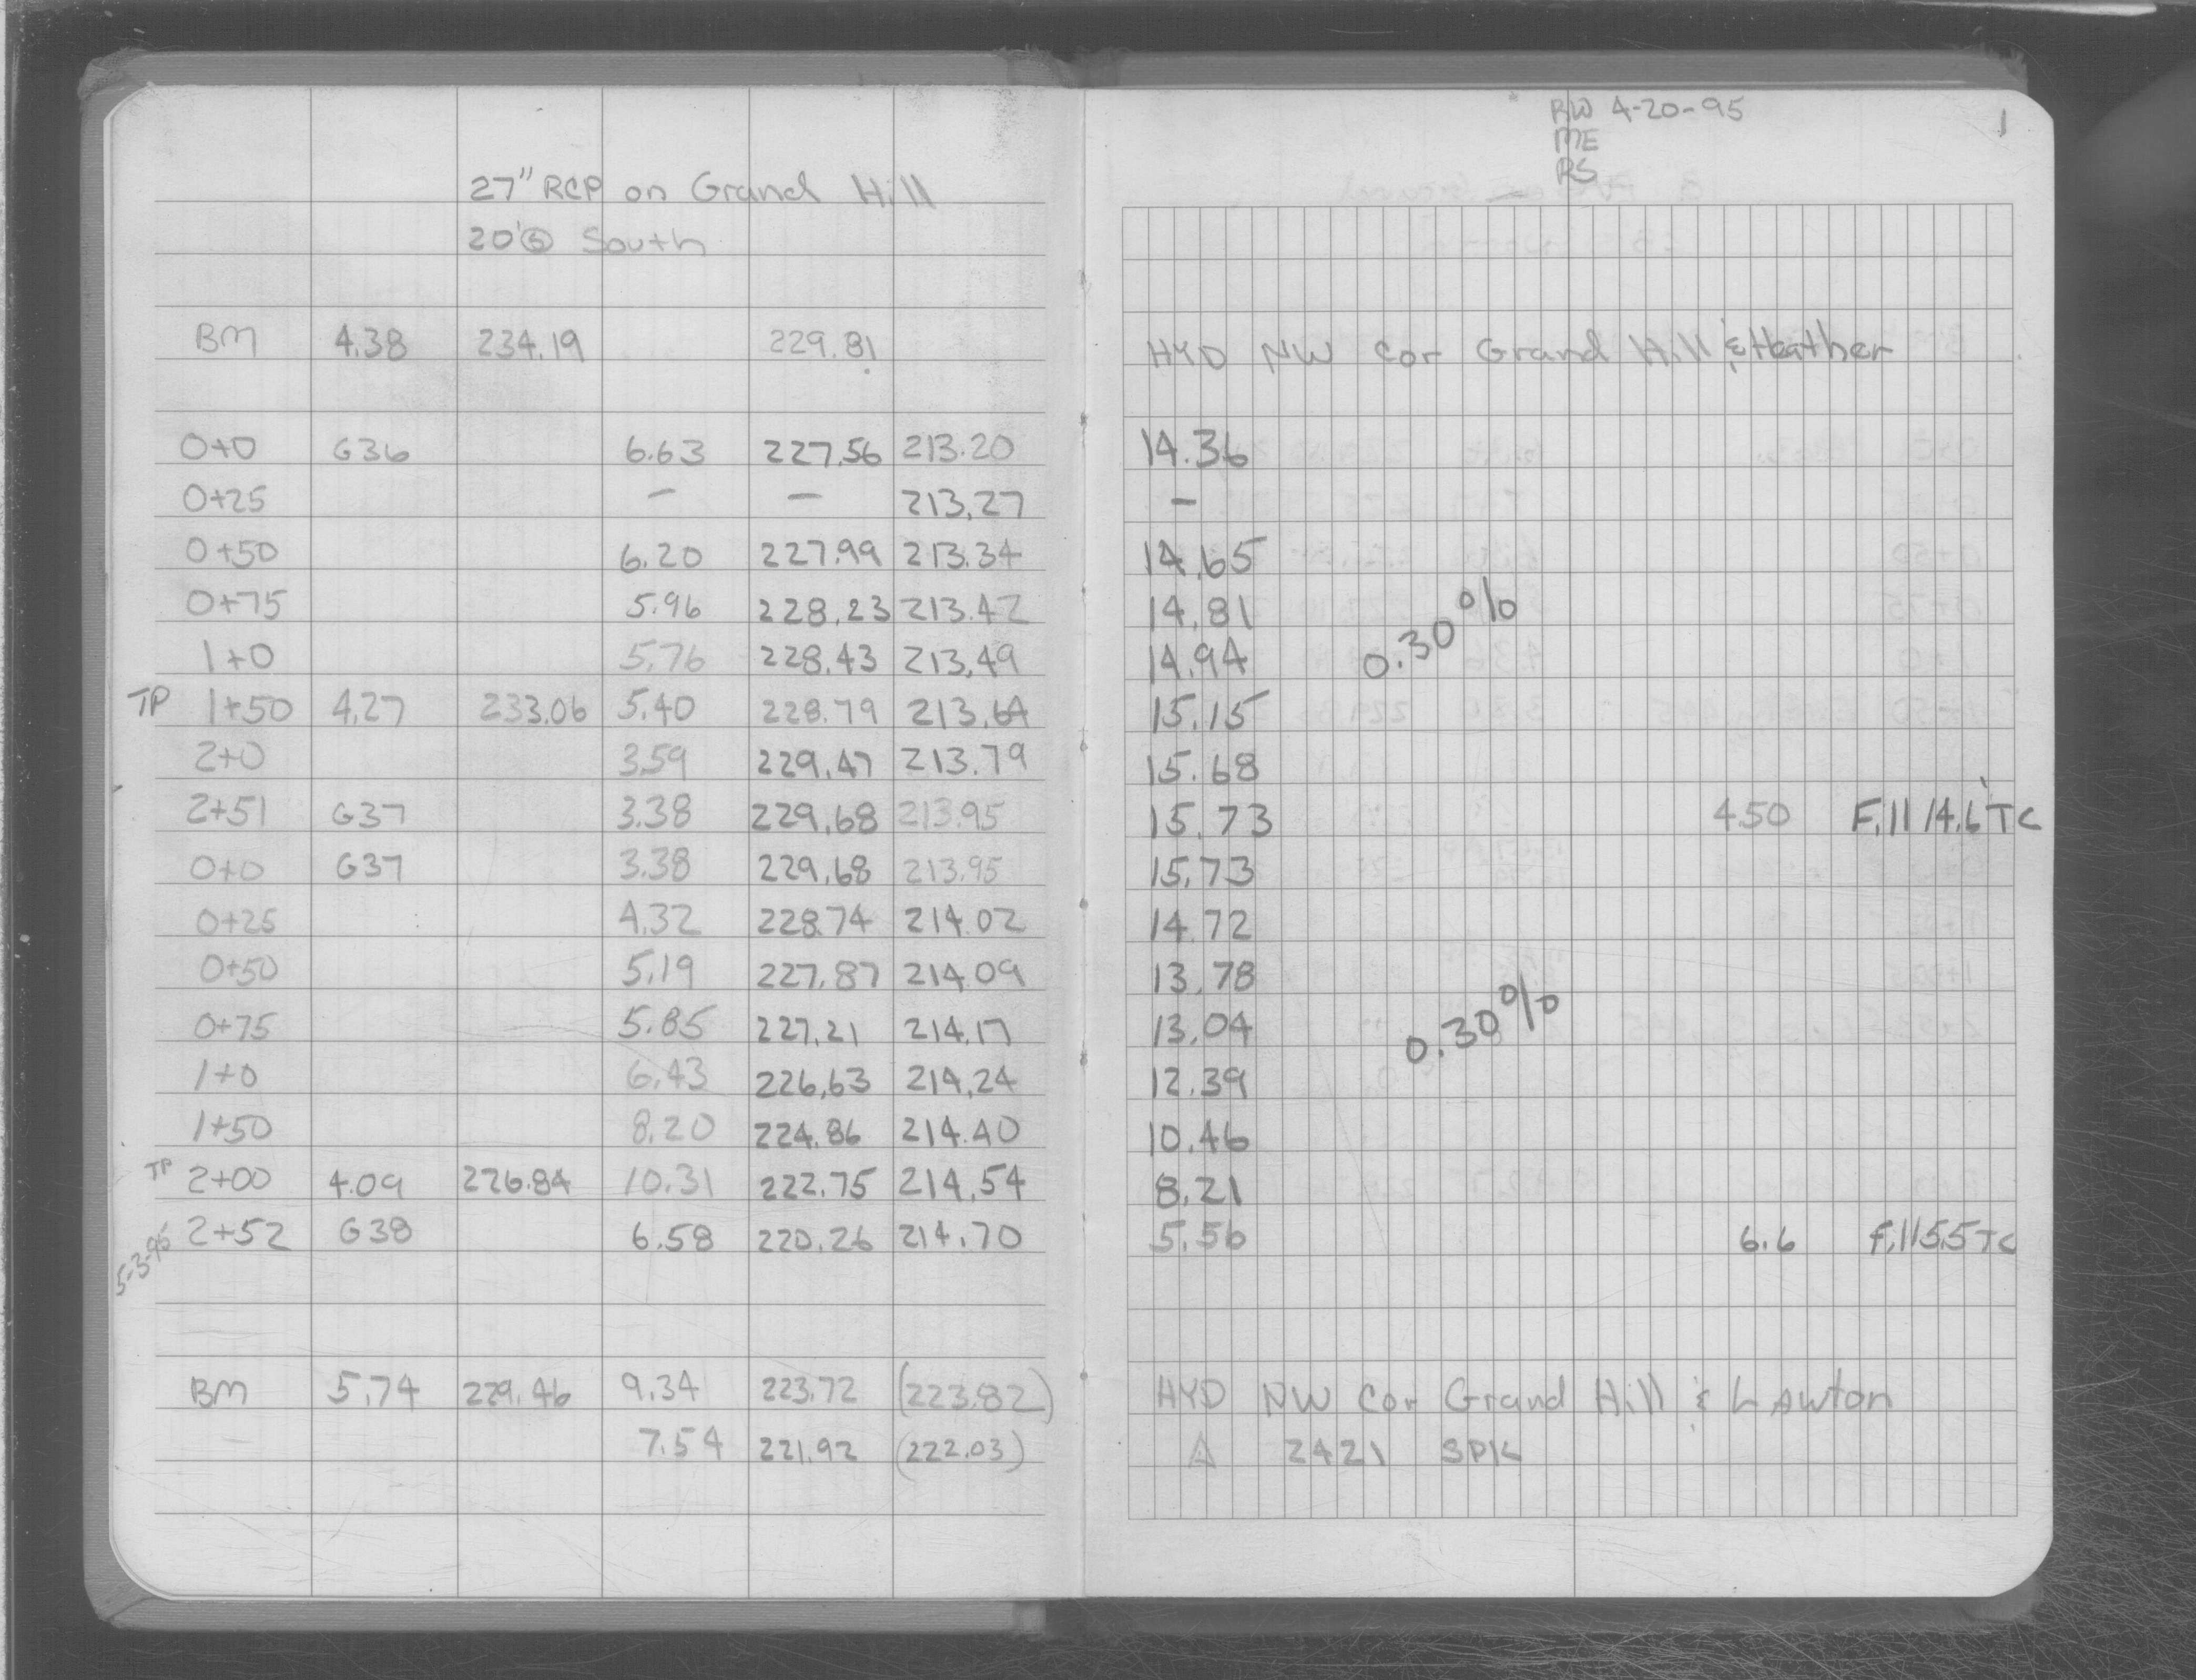 RW 4-20-95
ME
RS
1
27" RCP on Grand Hill
20' South
BM 4.38 234.19 229.81 HYD NW Cor Grand Hill & Heather
0+0 G36 6.63 227.56 213.20 14.36
0+25 — — 213.27 —
0+50 6.20 227.99 213.34 14.65
0+75 5.96 228.23 213.42 14.81
0.30%
1+0 5.76 228.43 213.49 14.94
TP 1+50 4.27 233.06 5.40 228.79 213.64 15.15
2+0 3.59 229.47 213.79 15.68
2+51 G37 3.38 229.68 213.95 15.73 4.50 Fill 14.6' TC
0+0 G37 3.38 229.68 213.95 15.73
0+25 4.32 228.74 214.02 14.72
0+50 5.19 227.87 214.09 13.78
0+75 5.85 227.21 214.17 13.04
0.30%
1+0 6.43 226.63 214.24 12.39
1+50 8.20 224.86 214.40 10.46
TP 2+00 4.09 226.84 10.31 222.75 214.54 8.21
2+52 G38 6.58 220.26 214.70 5.56 6.6 Fill 5.5 TC
5-3-95
BM 5.74 229.46 9.34 223.72 (223.82) HYD NW Cor Grand Hill & Lawton
7.54 221.92 (222.03) △ 2421 SPK